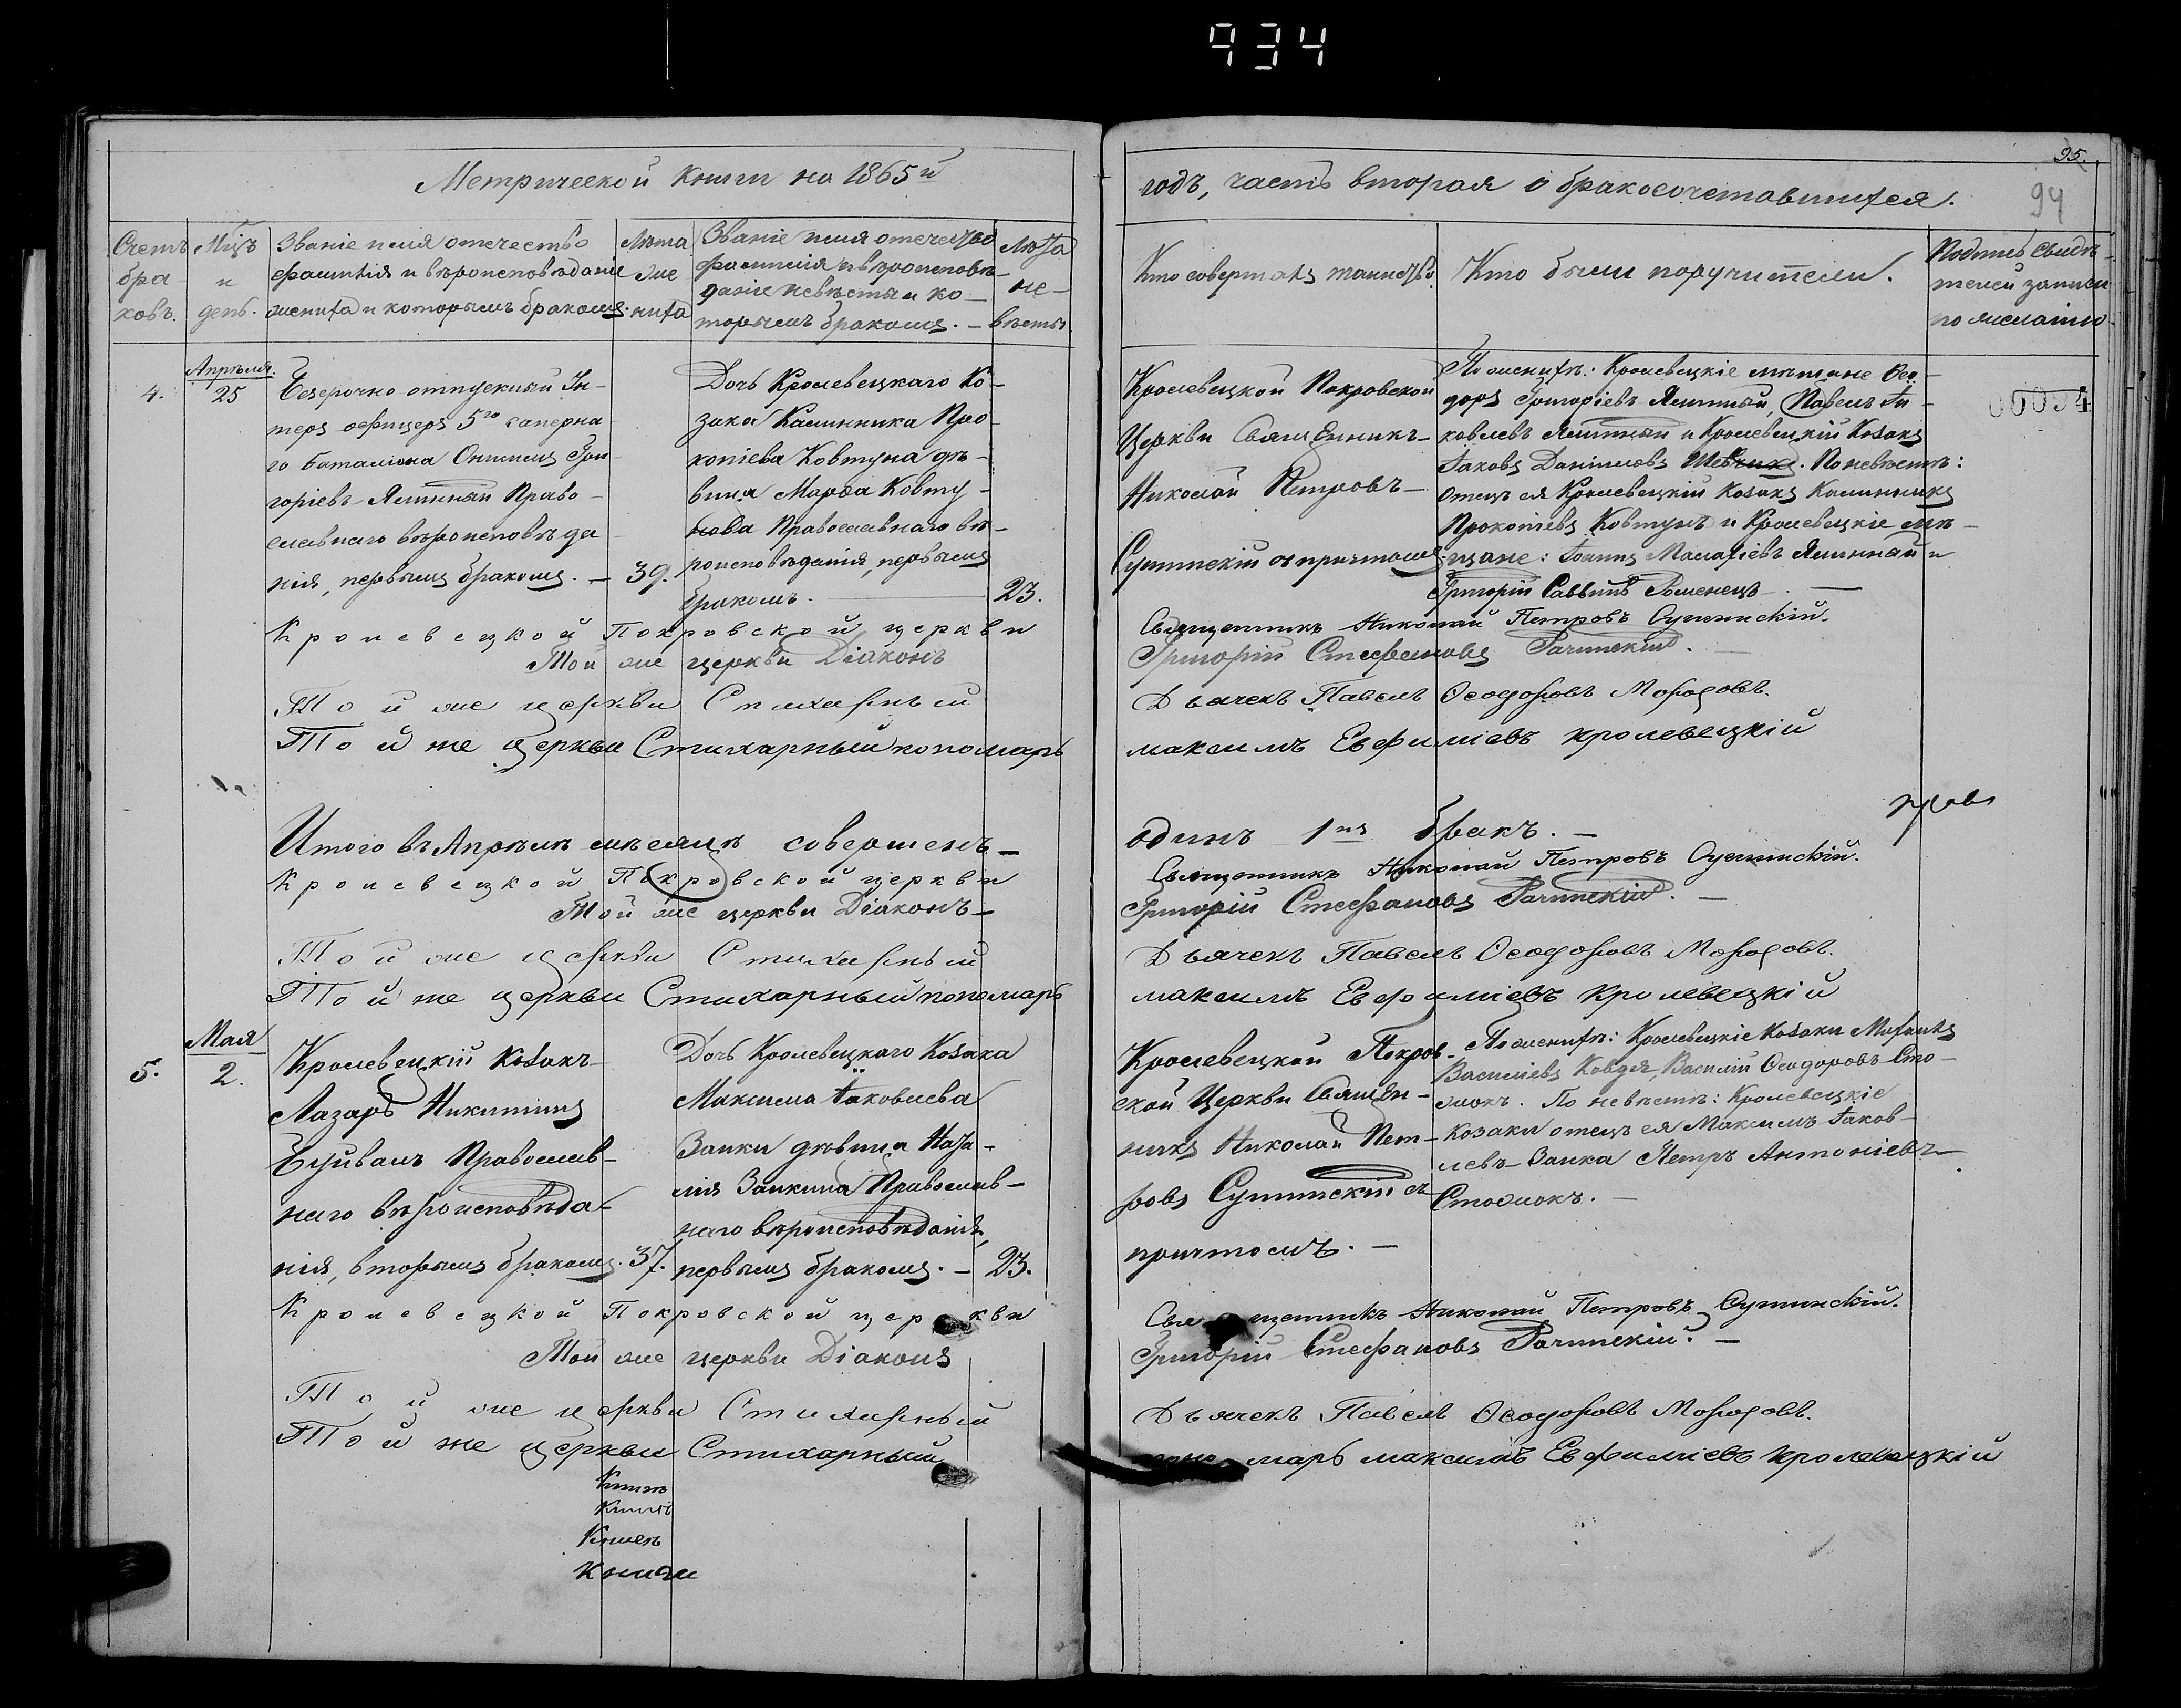 934
Метрической книги на 1865й
годъ, часть вторая о бракосочетавшихся.
95.
94
Счетъ браковъ.
Мцъ и день.
Званіе имя отечество
фамилія и вѣроисповѣданіе
жениха и которымъ бракомъ.
Лѣта
же
ниха
Званіе имя отечество
фамилія и вѣроисповѣ-
даніе невѣсты и ко-
торымъ бракомъ. –
Лѣта
не-
вѣсты
Кто совершалъ таинство.
Кто были поручители.
Подпись свидѣ-
телей записи
по желанію
4.
Апрѣля.
25
Безсрочно отпускный Ун-
теръ офицеръ 5го саперна-
го баталіона Онисимъ Гри-
горіевъ Ялинный Право-
славнаго вѣроисповѣда
нія, первымъ бракомъ. –
39.
Дочь Кролевецкаго Ко-
зака Калинника Про-
копіева Ковтуна дѣ-
вица Марѳа Ковту-
нова Православнаго вѣ-
роисповѣданія, первымъ
бракомъ.
23.
Кролевецкой Покровской
Церкви Священникъ
Николай Петровъ
Сушинскій съ причтомъ
По женихѣ: Кролевецкіе мѣщане Ѳео-
доръ Григоріевъ Ялинный, Павелъ Іа-
ковлевъ Ялинный и Кролевецкій Козакъ
Іаковъ Даніиловъ . По невѣстѣ:
отецъ ея Кролевецкій Козакъ Калинникъ
Прокопіевъ Ковтунъ и Кролевецкіе мѣ-
щане: Іоаннъ Малахіевъ Ялинный и
Григорій Саввинъ Роменецъ
00094
Кролевецкой Покровской церкви
Священникъ Николай Петровъ Сушинскій.
Той же церкви Діаконъ
Григорій Стефановъ Рачинскій.
Той же церкви Стихарный
Дьячекъ Павелъ Ѳеодоровъ Мородовъ.
Той же церкви Стихарный пономарь
максимъ Евфиміевъ кролевецкій
Итого въ Апрѣлѣ мѣсяцѣ совершенъ –
одинъ 1нъ бракъ. –
Кролевецкой Покровской церкви
Священникъ Николай Петровъ Сушинскій.
Той же церкви Діаконъ –
Григорій Стефановъ Рачинскій. –
Той же церкви Стихарный
Дьячекъ Павелъ Ѳеодоровъ Мородовъ.
Той же церкви Стихарный пономарь
максимъ Евфиміевъ кролевецкій
5.
Мая
2.
Кролевецкій Козакъ
Лазарь Никитинъ
Православ-
наго вѣроисповѣда-
нія, вторымъ бракомъ.
37.
Дочь Кролевецкаго Козака
Максима Іаковлева
Заики дѣвица Ната-
лія Заикина Православ-
наго вѣроисповѣданія,
первымъ бракомъ. –
23.
Кролевецкой Покров-
ской Церкви Священ-
никъ Николай Пет-
ровъ Сушинскій съ
причтомъ. –
По женихѣ: Кролевецкіе Козаки Михаилъ
Василіевъ , Василій Ѳеодоровъ Сто-
жокъ. По невѣстѣ: Кролевецкіе
Козаки отецъ ея Максимъ Іаков-
левъ Заика Петръ Антоніевъ
Стожокъ. –
Кролевецкой Покровской церкви
Священникъ Николай Петровъ Сушинскій.
Той же церкви Діаконъ
Григорій Стефановъ Рачинскій. –
Той же церкви Стихарный
Дьячекъ Павелъ Ѳеодоровъ Мородовъ.
Той же церкви Стихарный
пономарь максимъ Евфиміевъ кролевецкій
Книги